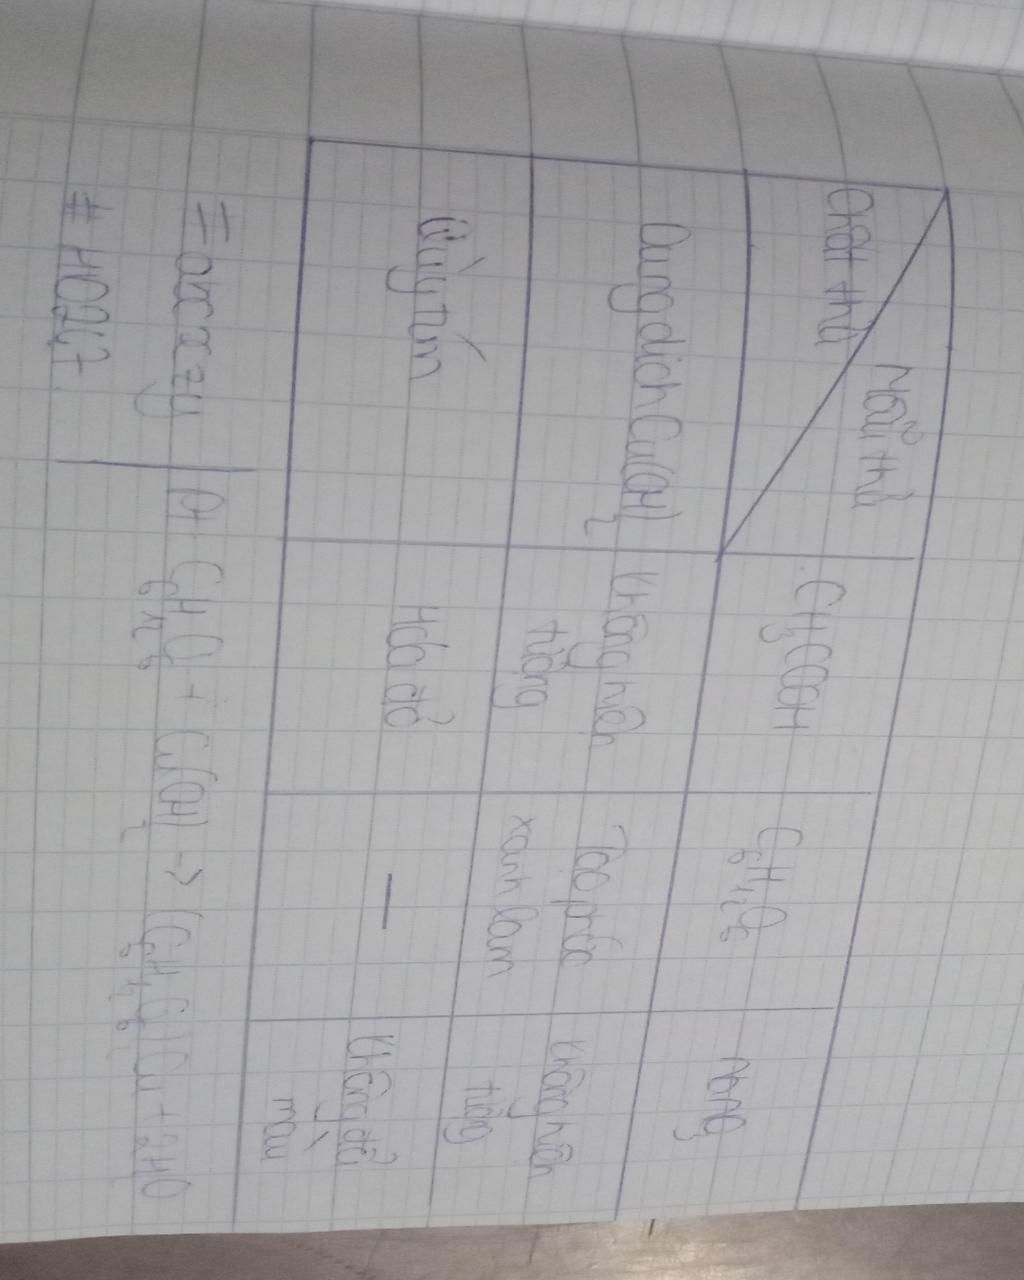 Mẫu thử
Chất thử
CH3COOH
C6H12O6
NaNO3
Dung dịch Cu(OH)2
Không hiện
tượng
Tạo phức
xanh lam
Không hiện
tượng
Quỳ tím
Hóa đỏ
—
Không đổi
màu
=abcxzy
# H0247
Pt C6H12O6 + Cu(OH)2 -> (C6H11O6)2Cu + 2H2O